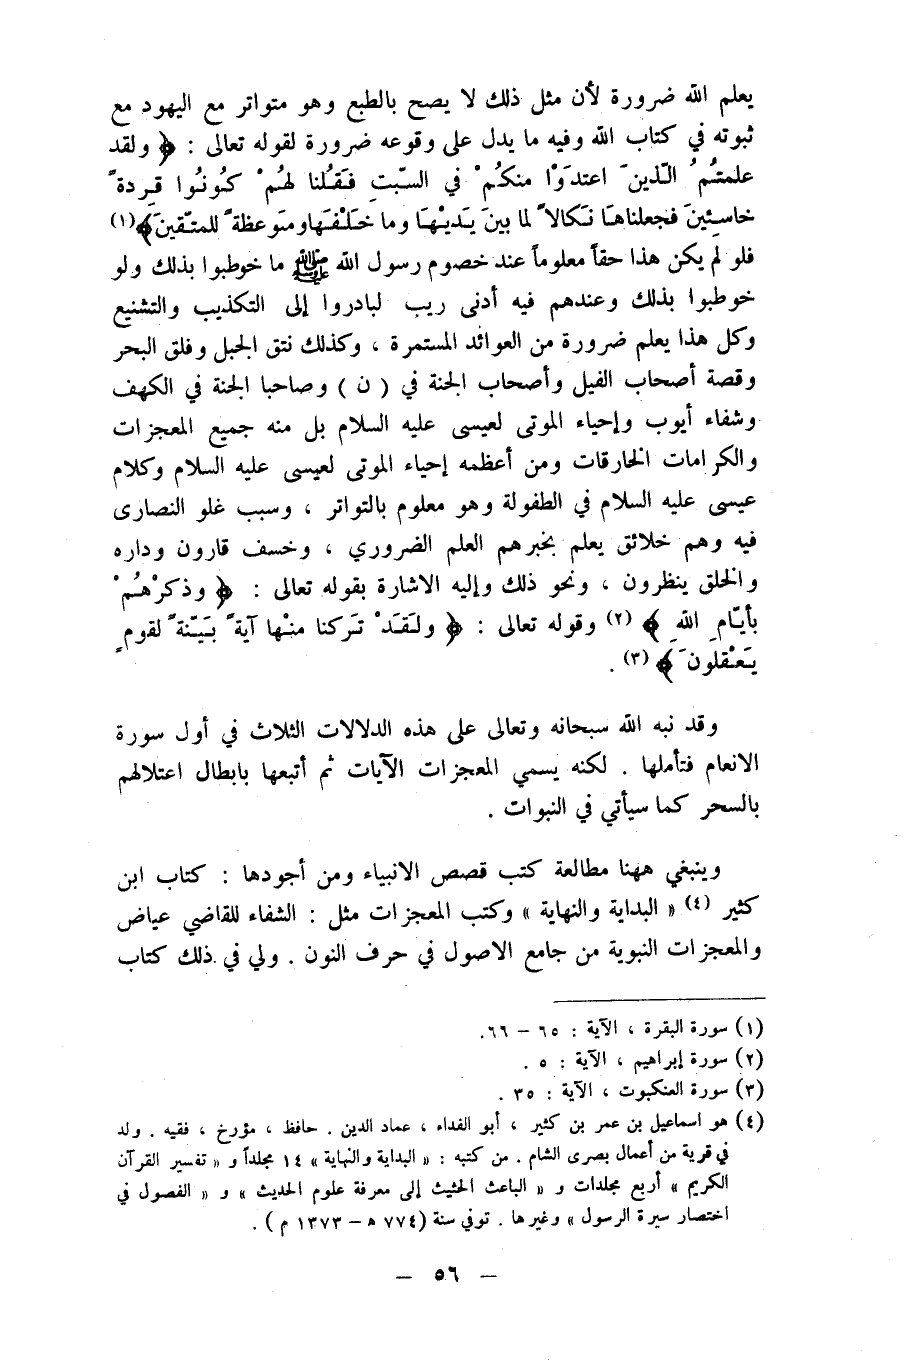 يعلم الله ضرورة لأن مثل ذلك لا يصح بالطبع وهو متواتر مع اليهود مع
ثبوته في كتاب الله وفيه ما يدل على وقوعه ضرورة لقوله تعالى : ﴿ ولقد
علمتُمُ الّذينَ اعتدَوْا منكُمْ في السّبتِ فَقُلنا لهُمْ كُونُوا قِردةً
خاسِئينَ فجعلناهَا نَكالاً لما بينَ يَديْهَا وما خَلْفَهَا ومَوعظةً للمتّقينَ﴾(١)
فلو لم يكن هذا حقاً معلوماً عند خصوم رسول الله ﷺ ما خوطبوا بذلك ولو
خوطبوا بذلك وعندهم فيه أدنى ريب لبادروا إلى التكذيب والتشنيع
وكل هذا يعلم ضرورة من العوائد المستمرة ، وكذلك نتق الجبل وفلق البحر
وقصة أصحاب الفيل وأصحاب الجنة في ( ن ) وصاحبا الجنة في الكهف
وشفاء أيوب وإحياء الموتى لعيسى عليه السلام بل منه جميع المعجزات
والكرامات الخارقات ومن أعظمه إحياء الموتى لعيسى عليه السلام وكلام
عيسى عليه السلام في الطفولة وهو معلوم بالتواتر ، وسبب غلو النصارى
فيه وهم خلائق يعلم بخبرهم العلم الضروري ، وخسف قارون وداره
والخلق ينظرون ، ونحو ذلك وإليه الاشارة بقوله تعالى : ﴿ وذكرْهُمْ
بأيّامِ اللهِ ﴾ (٢) وقوله تعالى : ﴿ ولَقَدْ تَركنا منْها آيةً بَيّنةً لقومٍ
يَعْقلونَ ﴾ (٣) .
وقد نبه الله سبحانه وتعالى على هذه الدلالات الثلاث في أول سورة
الانعام فتأملها . لكنه يسمي المعجزات الآيات ثم أتبعها بابطال اعتلالهم
بالسحر كما سيأتي في النبوات .
وينبغي ههنا مطالعة كتب قصص الانبياء ومن أجودها : كتاب ابن
كثير (٤) « البداية والنهاية » وكتب المعجزات مثل : الشفاء للقاضي عياض
والمعجزات النبوية من جامع الاصول في حرف النون . ولي في ذلك كتاب
(١) سورة البقرة ، الآية : ٦٥ – ٦٦.
(٢) سورة إبراهيم ، الآية : ٥ .
(٣) سورة العنكبوت ، الآية : ٣٥ .
(٤) هو اسماعيل بن عمر بن كثير ، أبو الفداء ، عماد الدين . حافظ ، مؤرخ ، فقيه . ولد
في قرية من أعمال بصرى الشام . من كتبه : « البداية والنهاية » ١٤ مجلداً و « تفسير القرآن
الكريم » أربع مجلدات و « الباعث الحثيث إلى معرفة علوم الحديث » و « الفصول في
اختصار سيرة الرسول » وغيرها . توفي سنة (٧٧٤ ه – ١٣٧٣ م ) .
– ٥٦ –